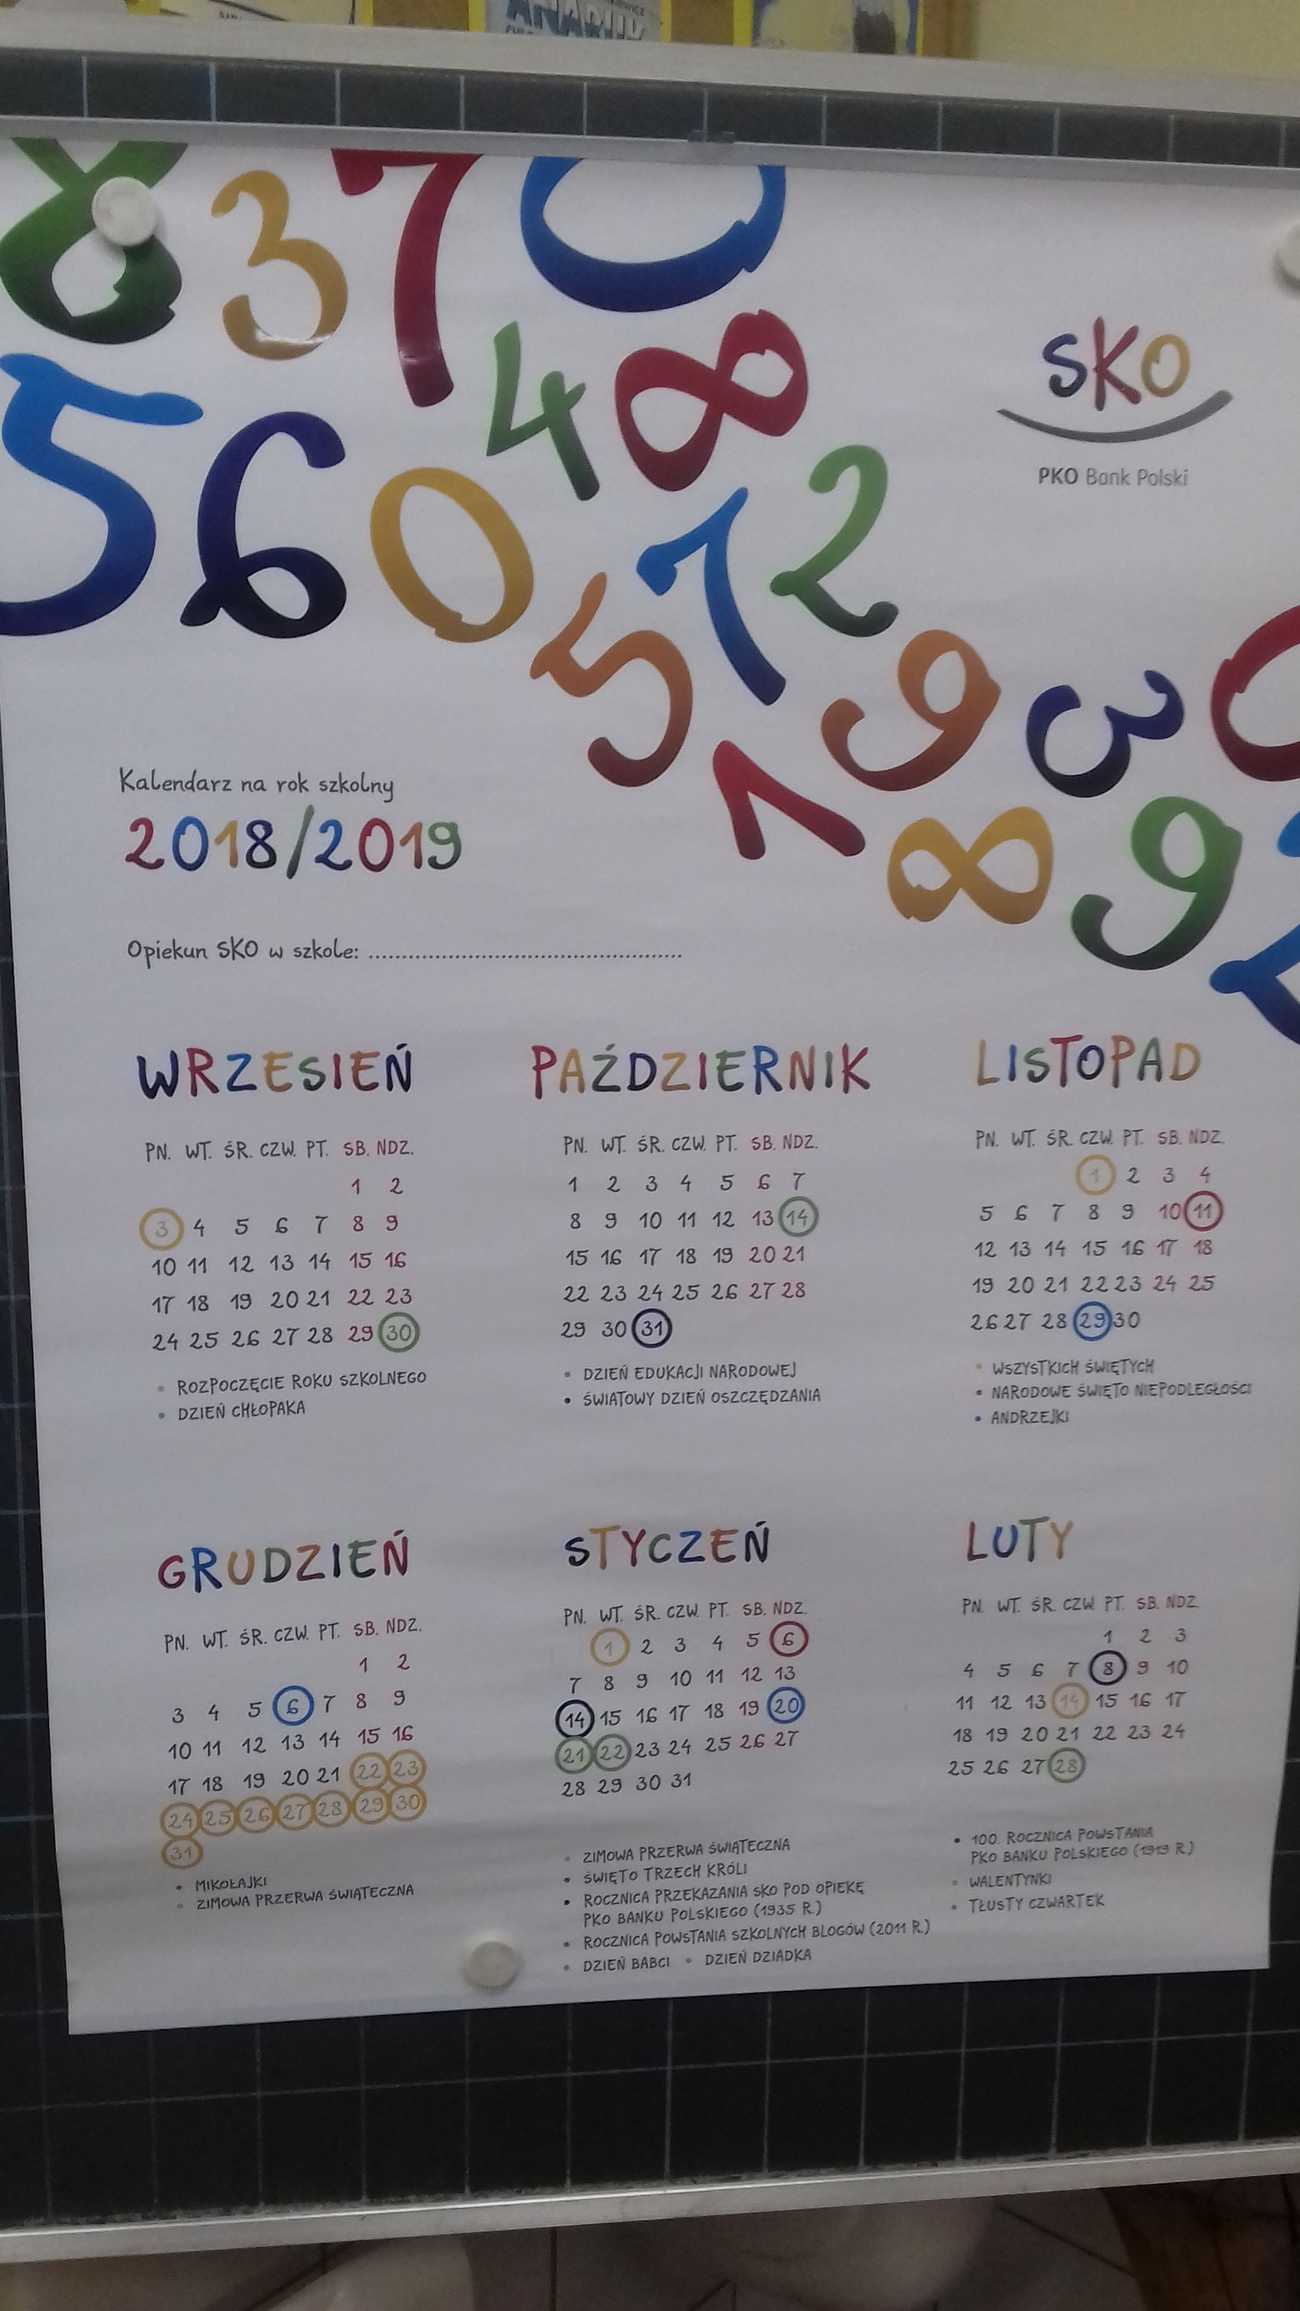 ANARUK
8 3 7 0
5 6 0 4 8
5 7 2
1 9 3 0
8 9 2
SKO
PKO Bank Polski
Kalendarz na rok szkolny
2018/2019
Opiekun SKO w szkole: ................................................
WRZESIEŃ
PN. WT. ŚR. CZW. PT. SB. NDZ.
1 2
3 4 5 6 7 8 9
10 11 12 13 14 15 16
17 18 19 20 21 22 23
24 25 26 27 28 29 30
• ROZPOCZĘCIE ROKU SZKOLNEGO
• DZIEŃ CHŁOPAKA
PAŹDZIERNIK
PN. WT. ŚR. CZW. PT. SB. NDZ.
1 2 3 4 5 6 7
8 9 10 11 12 13 14
15 16 17 18 19 20 21
22 23 24 25 26 27 28
29 30 31
• DZIEŃ EDUKACJI NARODOWEJ
• ŚWIATOWY DZIEŃ OSZCZĘDZANIA
LISTOPAD
PN. WT. ŚR. CZW. PT. SB. NDZ.
1 2 3 4
5 6 7 8 9 10 11
12 13 14 15 16 17 18
19 20 21 22 23 24 25
26 27 28 29 30
• WSZYSTKICH ŚWIĘTYCH
• NARODOWE ŚWIĘTO NIEPODLEGŁOŚCI
• ANDRZEJKI
GRUDZIEŃ
PN. WT. ŚR. CZW. PT. SB. NDZ.
1 2
3 4 5 6 7 8 9
10 11 12 13 14 15 16
17 18 19 20 21 22 23
24 25 26 27 28 29 30
31
• MIKOŁAJKI
• ZIMOWA PRZERWA ŚWIĄTECZNA
STYCZEŃ
PN. WT. ŚR. CZW. PT. SB. NDZ.
1 2 3 4 5 6
7 8 9 10 11 12 13
14 15 16 17 18 19 20
21 22 23 24 25 26 27
28 29 30 31
• ZIMOWA PRZERWA ŚWIĄTECZNA
• ŚWIĘTO TRZECH KRÓLI
• ROCZNICA PRZEKAZANIA SKO POD OPIEKĘ
PKO BANKU POLSKIEGO (1935 R.)
• ROCZNICA POWSTANIA SZKOLNYCH BLOGÓW (2011 R.)
• DZIEŃ BABCI • DZIEŃ DZIADKA
LUTY
PN. WT. ŚR. CZW. PT. SB. NDZ.
1 2 3
4 5 6 7 8 9 10
11 12 13 14 15 16 17
18 19 20 21 22 23 24
25 26 27 28
• 100. ROCZNICA POWSTANIA
PKO BANKU POLSKIEGO (1919 R.)
• WALENTYNKI
• TŁUSTY CZWARTEK